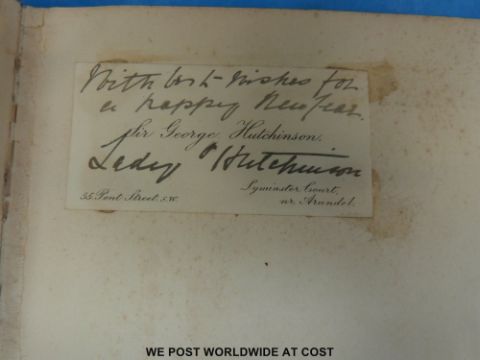 With best wishes for
a happy New Year.
Sir George Hutchinson.
Lady Hutchinson
55 Pont Street. S.W.
Lyminster Court,
nr. Arundel.
WE POST WORLDWIDE AT COST